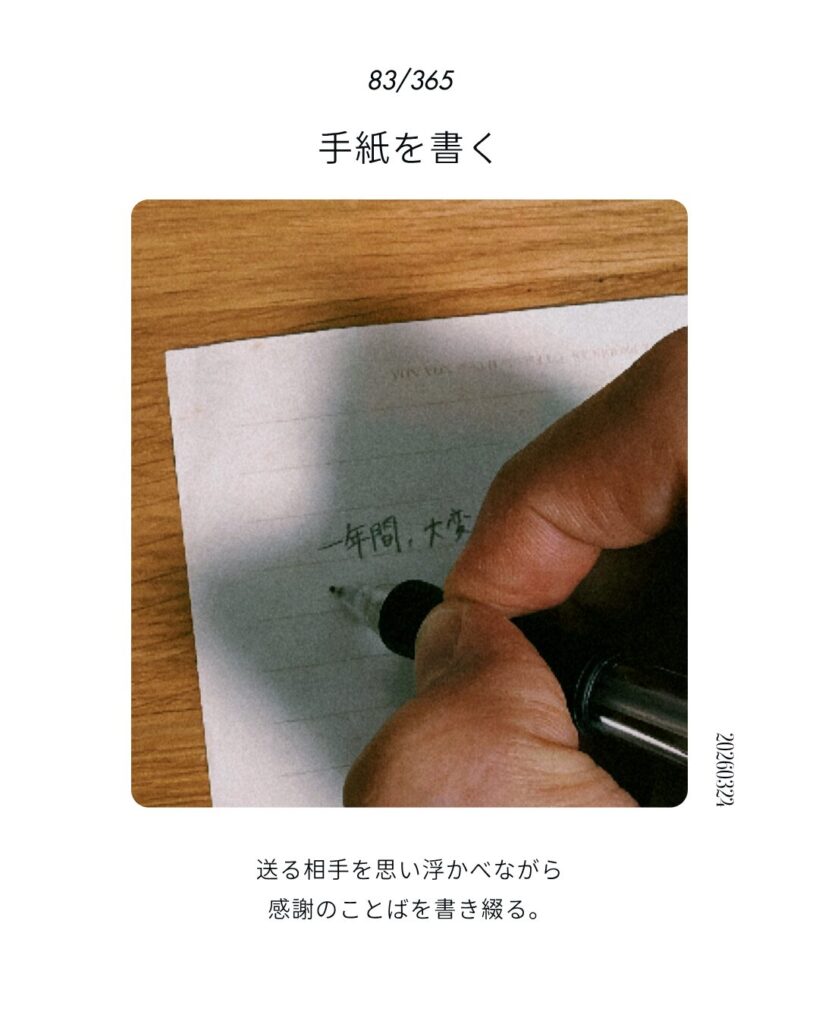 83/365
手紙を書く
一年間、大変
20260324
送る相手を思い浮かべながら
感謝のことばを書き綴る。